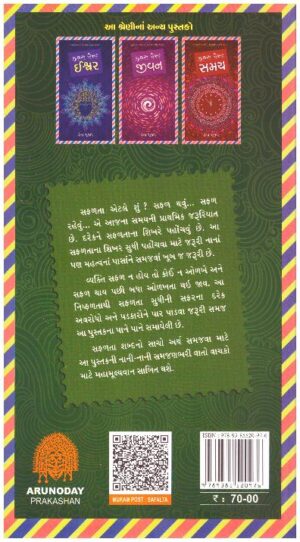 આ શ્રેણીનાં અન્ય પુસ્તકો
મુકામ પોસ્ટ
ઈશ્વર
મુકામ પોસ્ટ
જીવન
મુકામ પોસ્ટ
સમય
સફળતા એટલે શું ? સફળ થવું... સફળ
રહેવું... એ આજના સમયની પ્રાથમિક જરૂરિયાત
છે. દરેકને સફળતાના શિખરે પહોંચવું છે. આ
સફળતાના શિખર સુધી પહોંચવા માટે જરૂરી નાનાં
પણ મહત્વનાં પાસાંને સમજવાં ખૂબ જ જરૂરી છે.
વ્યક્તિ સફળ ન હોય તો કોઈ ન ઓળખે અને
સફળ થાય પછી બધા ઓળખતા થઈ જાય. આ
નિષ્ફળતાથી સફળતા સુધીની સફરના દરેક
અવરોધો અને પડકારોને પાર પાડવા જરૂરી સમજ
આ પુસ્તકના પાને પાને સમાયેલી છે.
સફળતા શબ્દનો સાચો અર્થ સમજવા માટે
આ પુસ્તકની નાની-નાની સમજણભરી વાતો વાચકો
માટે મહામૂલ્યવાન સાબિત થશે.
ARUNODAY
PRAKASHAN
MUKAM POST : SAFALTA
₹ : 70-00